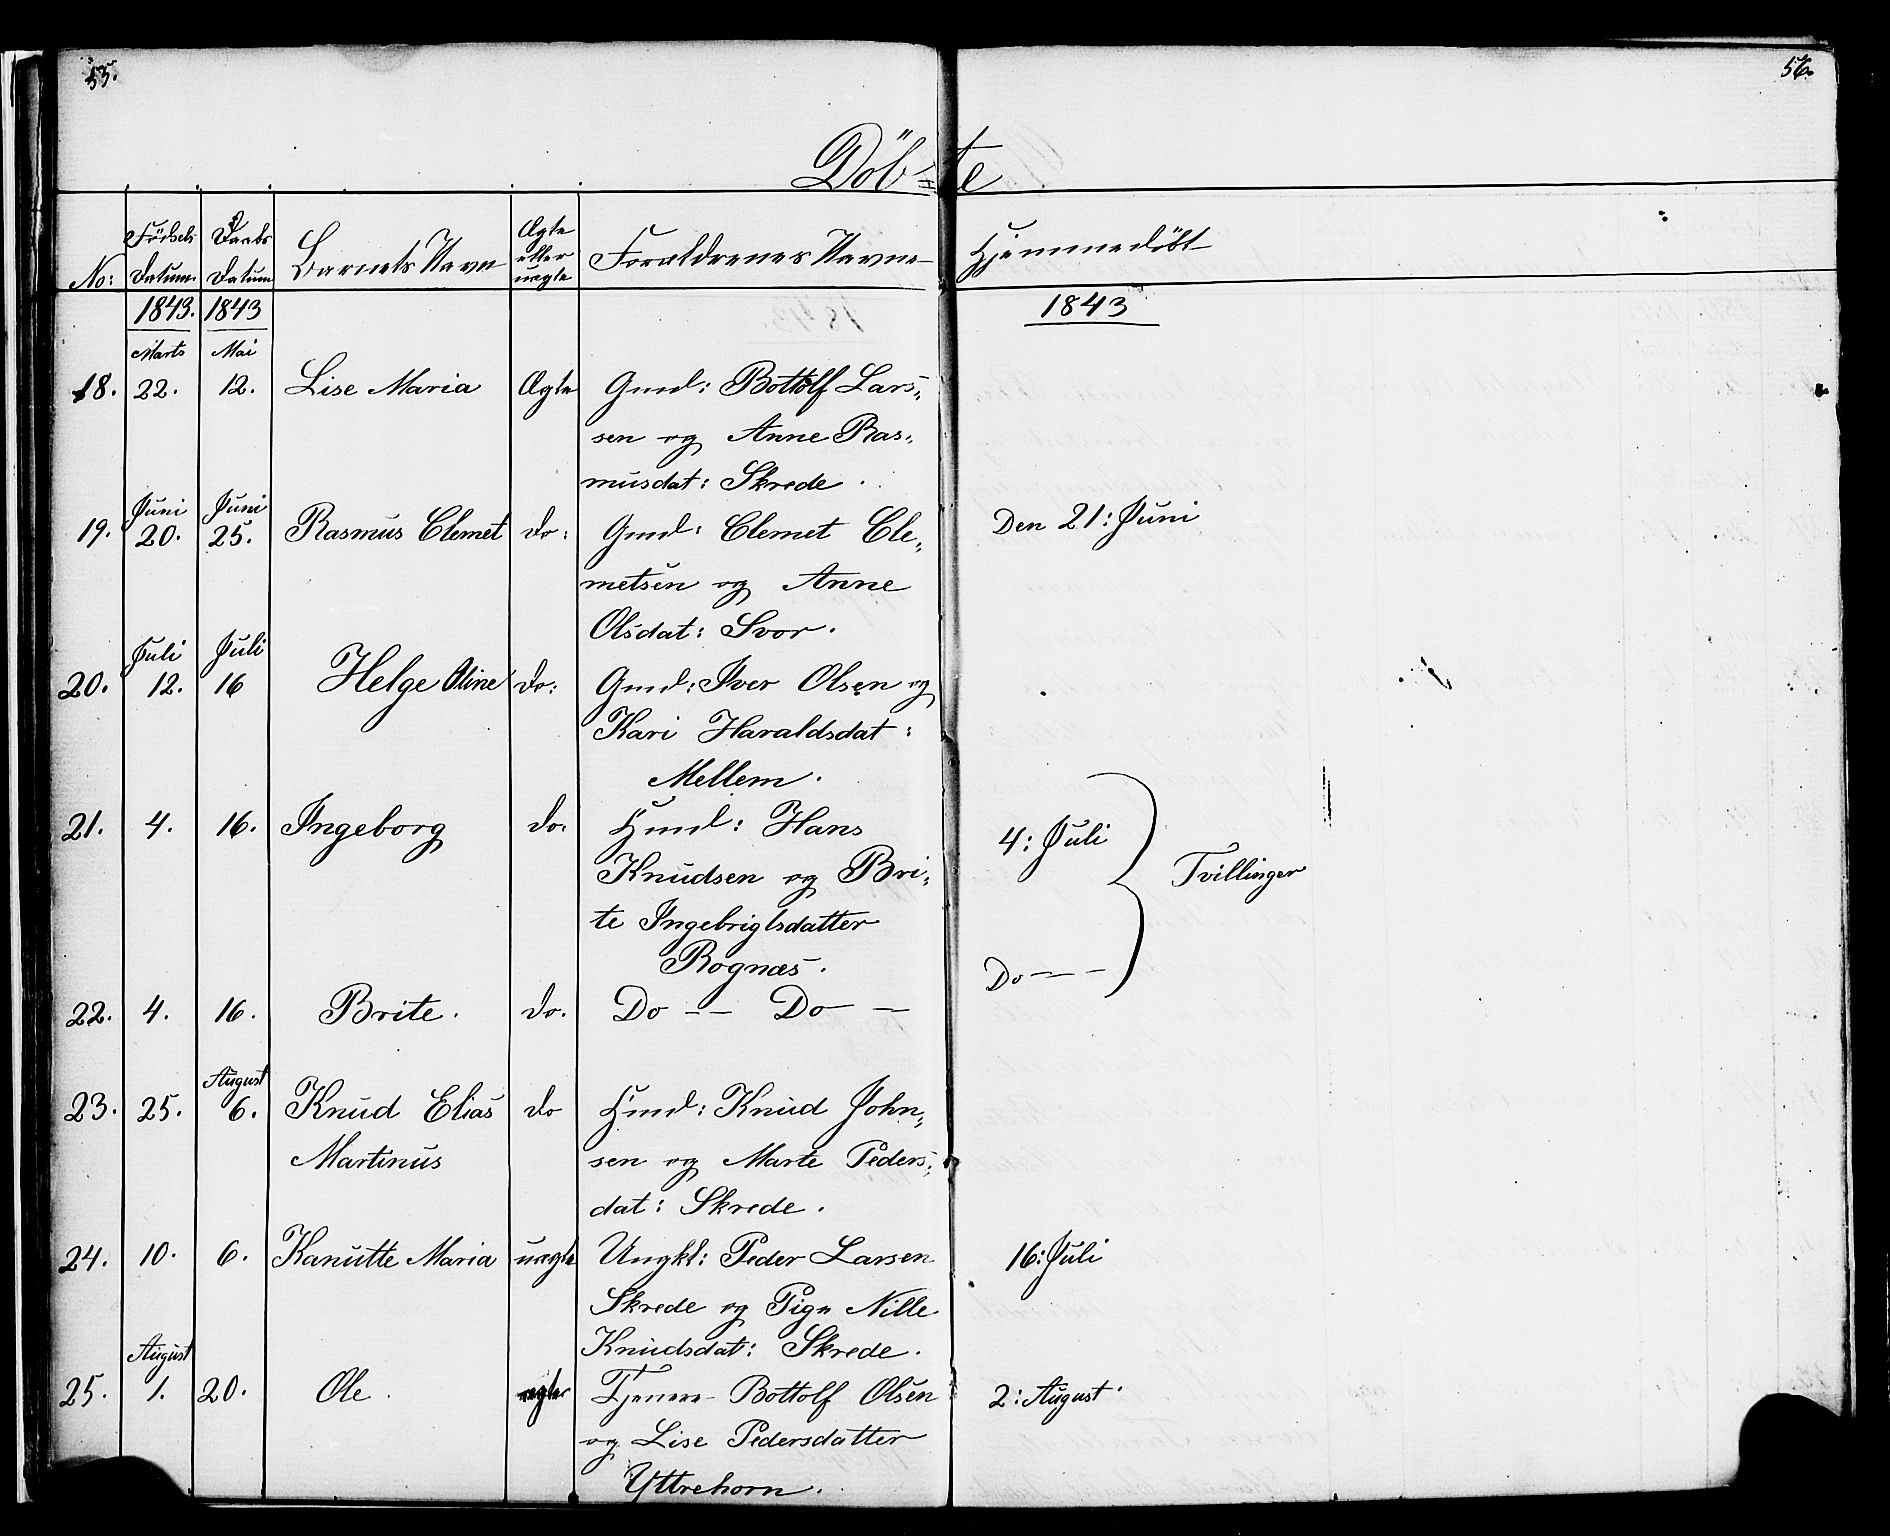 55. 56.
Döb=te
No: Födsels Datum. Daabs Datum Barnets Navn Ægte eller uægte Forældrenes Navne Hjemmedöbt
1843. 1843 1843
Marts Mai
18. 22. 12. Lise Maria Ægte Gmd: Bottolf Lars„
sen og Anne Ras„
musdat: Skrede.
Juni Juni
19. 20. 25. Rasmus Clemet do: Gmd: Clemet Cle„ Den 21: Juni
metsen og Anne
Olsdat: Svor.
Juli Juli
20. 12. 16 Helge Oline do: Gmd: Iver Olsen og
Kari Haraldsdat:
Mellem.
21. 4. 16. Ingeborg do. Hmd: Hans 4: Juli
Knudsen og Bri„ Tvillinger
te Ingebrigtsdatter
Rognæs. Do — —
22. 4. 16. Brite. do. Do — — Do —
August
23. 25. 6. Knud Elias do Hmd: Knud John„
Martinus sen og Marte Peders„
dat: Skrede.
24. 10. 6. Kanutte Maria uægte Ungkl: Peder Larsen 16: Juli
Skrede og Pige Nille
Knudsdat: Skrede.
August
25. 1. 20. Ole. ægte Tjenere Bottolf Olsen 2: August
og Lise Pedersdatter
Yttrehorn.